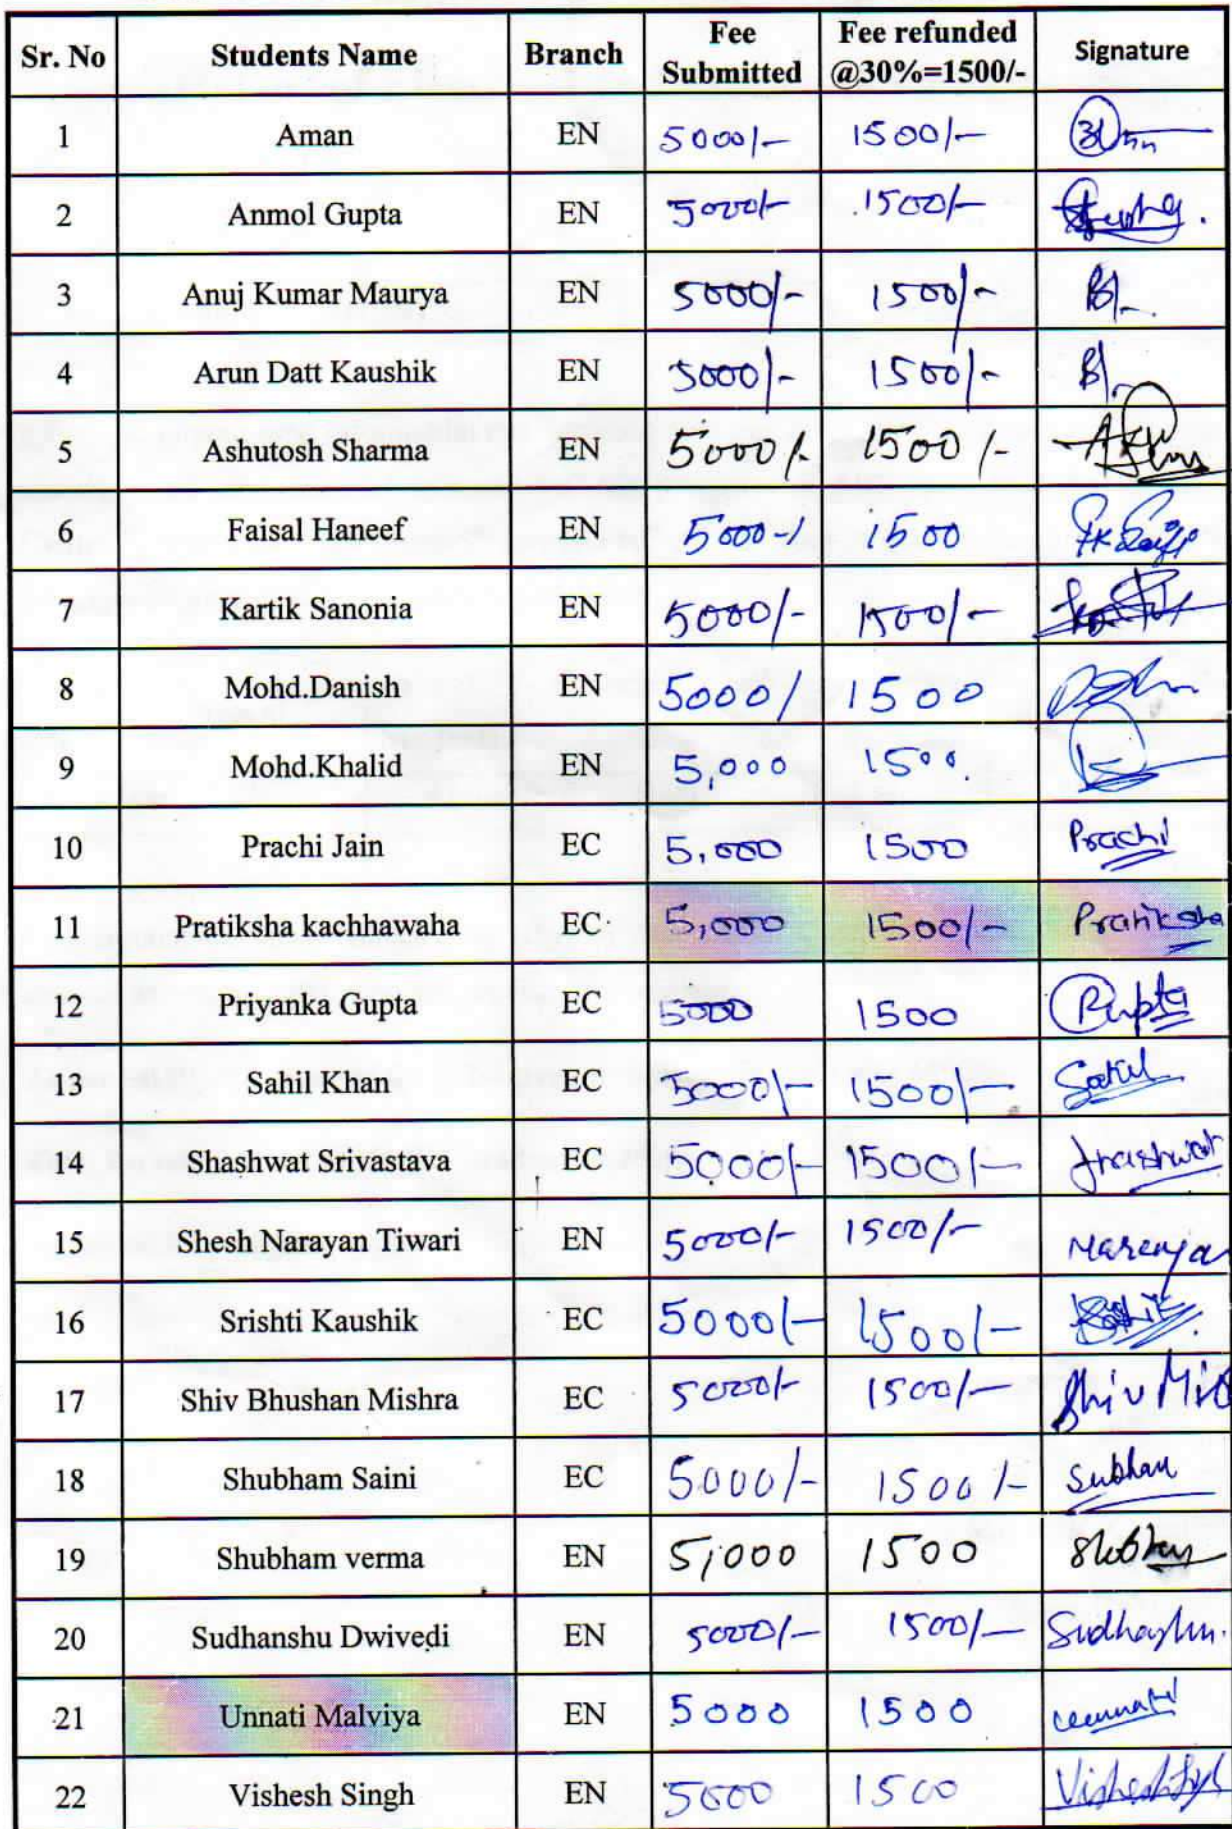 Sr. No Students Name Branch Fee Submitted Fee refunded @30%=1500/- Signature
1 Aman EN 5000/- 1500/-
2 Anmol Gupta EN 5000/- 1500/-
3 Anuj Kumar Maurya EN 5000/- 1500/-
4 Arun Datt Kaushik EN 5000/- 1500/-
5 Ashutosh Sharma EN 5000/- 1500/-
6 Faisal Haneef EN 5000-/ 1500
7 Kartik Sanonia EN 5000/- 1500/-
8 Mohd.Danish EN 5000/ 1500
9 Mohd.Khalid EN 5,000 1500.
10 Prachi Jain EC 5,000 1500 Prachi
11 Pratiksha kachhawaha EC 5,000 1500/- Pratiksha
12 Priyanka Gupta EC 5000 1500
13 Sahil Khan EC 5000/- 1500/- Sahil
14 Shashwat Srivastava EC 5000/- 1500/- Shashwat
15 Shesh Narayan Tiwari EN 5000/- 1500/-
16 Srishti Kaushik EC 5000/- 1500/-
17 Shiv Bhushan Mishra EC 5000/- 1500/- Shiv
18 Shubham Saini EC 5000/- 1500/- Subham
19 Shubham verma EN 5,000 1500
20 Sudhanshu Dwivedi EN 5000/- 1500/-
21 Unnati Malviya EN 5000 1500
22 Vishesh Singh EN 5000 1500